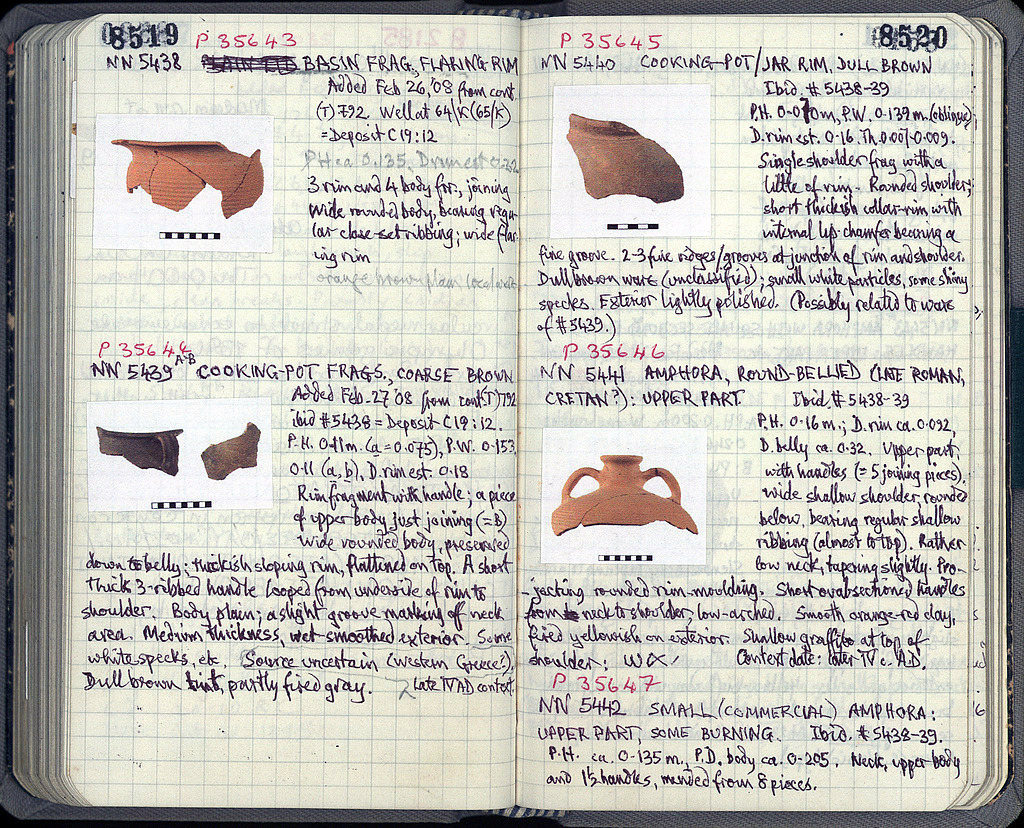 8519
P 35643
NN 5438 BASIN FRAG, FLARING RIM
Added Feb 26, '08 from cont.
(T) 792. Well at 64/K (65/K)
= Deposit C19:12
PH ca 0.135, D rim est 0.32
3 rim and 4 body frr, joining
Wide rounded body, bearing regu-
lar close-set ribbing; wide flar-
ing rim
orange brown plain local ware
P 35644
A-B
NN 5439 COOKING-POT FRAGS., COARSE BROWN
Added Feb. 27 '08 from cont. (T) 792
ibid #5438 = Deposit C19:12.
P.H. 0.11m. (a = 0.075), P.W. 0.153,
0.11 (a, b), D. rim est. 0.18
Rim fragment with handle; a piece
of upper body just joining (= B)
Wide rounded body, preserved
down to belly; thickish sloping rim, flattened on top. A short
thick 3-ribbed handle looped from underside of rim to
shoulder. Body plain; a slight groove marking off neck
area. Medium thickness, wet-smoothed exterior. Some
white specks, etc. (Source uncertain (western Greece?).
Dull brown, partly fired gray. Late IV AD context.
8520
P 35645
NN 5440 COOKING-POT/JAR RIM, DULL BROWN
Ibid. # 5438-39
P.H. 0.070m, P.W. 0.139 m. (oblique)
D. rim est. 0.16. Th. 0.007-0.009.
Single shoulder frag with a
little of rim. Rounded shoulder;
short thickish collar-rim with
internal lip-chamfer bearing a
fine groove. 2-3 fine ridges/grooves at junction of rim and shoulder.
Dull brown ware (unclassified); small white particles, some shiny
specks. Exterior lightly polished. (Possibly related to ware
of #5439.)
P 35646
NN 5441 AMPHORA, ROUND-BELLIED (LATE ROMAN,
CRETAN?): UPPER PART. Ibid. # 5438-39
P.H. 0.16 m.; D. rim ca. 0.092,
D. belly ca 0.32. Upper part
with handles (= 5 joining pieces).
Wide shallow shoulder, rounded
below, bearing regular shallow
ribbing (almost to top). Rather
low neck, tapering slightly. Pro-
-jecting rounded rim-moulding. Short oval sectioned handles
from neck to shoulder, low-arched. Smooth orange-red clay,
fired yellowish on exterior. Shallow graffito at top of
shoulder: Context date: later IV c. A.D.
P 35647
NN 5442 SMALL (COMMERCIAL) AMPHORA:
UPPER PART, SOME BURNING. Ibid. # 5438-39.
P.H. ca. 0.135 m., P.D. body ca. 0.205. Neck, upper body
and 1½ handles, mended from 8 pieces.